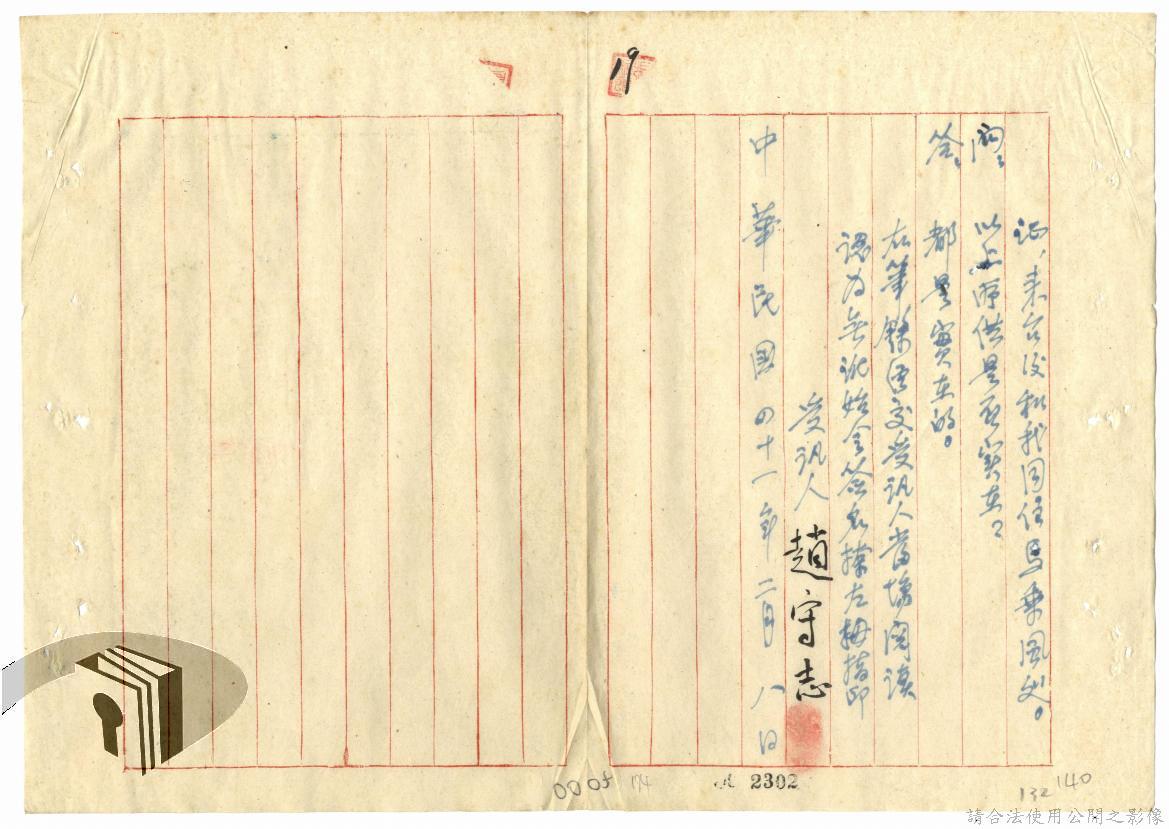 19
証，来台後和我同住馬乘風処。
問：以上所供是否実在？
答：都是實在的。
右筆錄經交受訊人當場閱讀
認為無訛始令簽名捺左拇指印
受訊人 趙守志
中華民國四十一年二月八日
0005 174
2302
132 140
請合法使用公開之影像